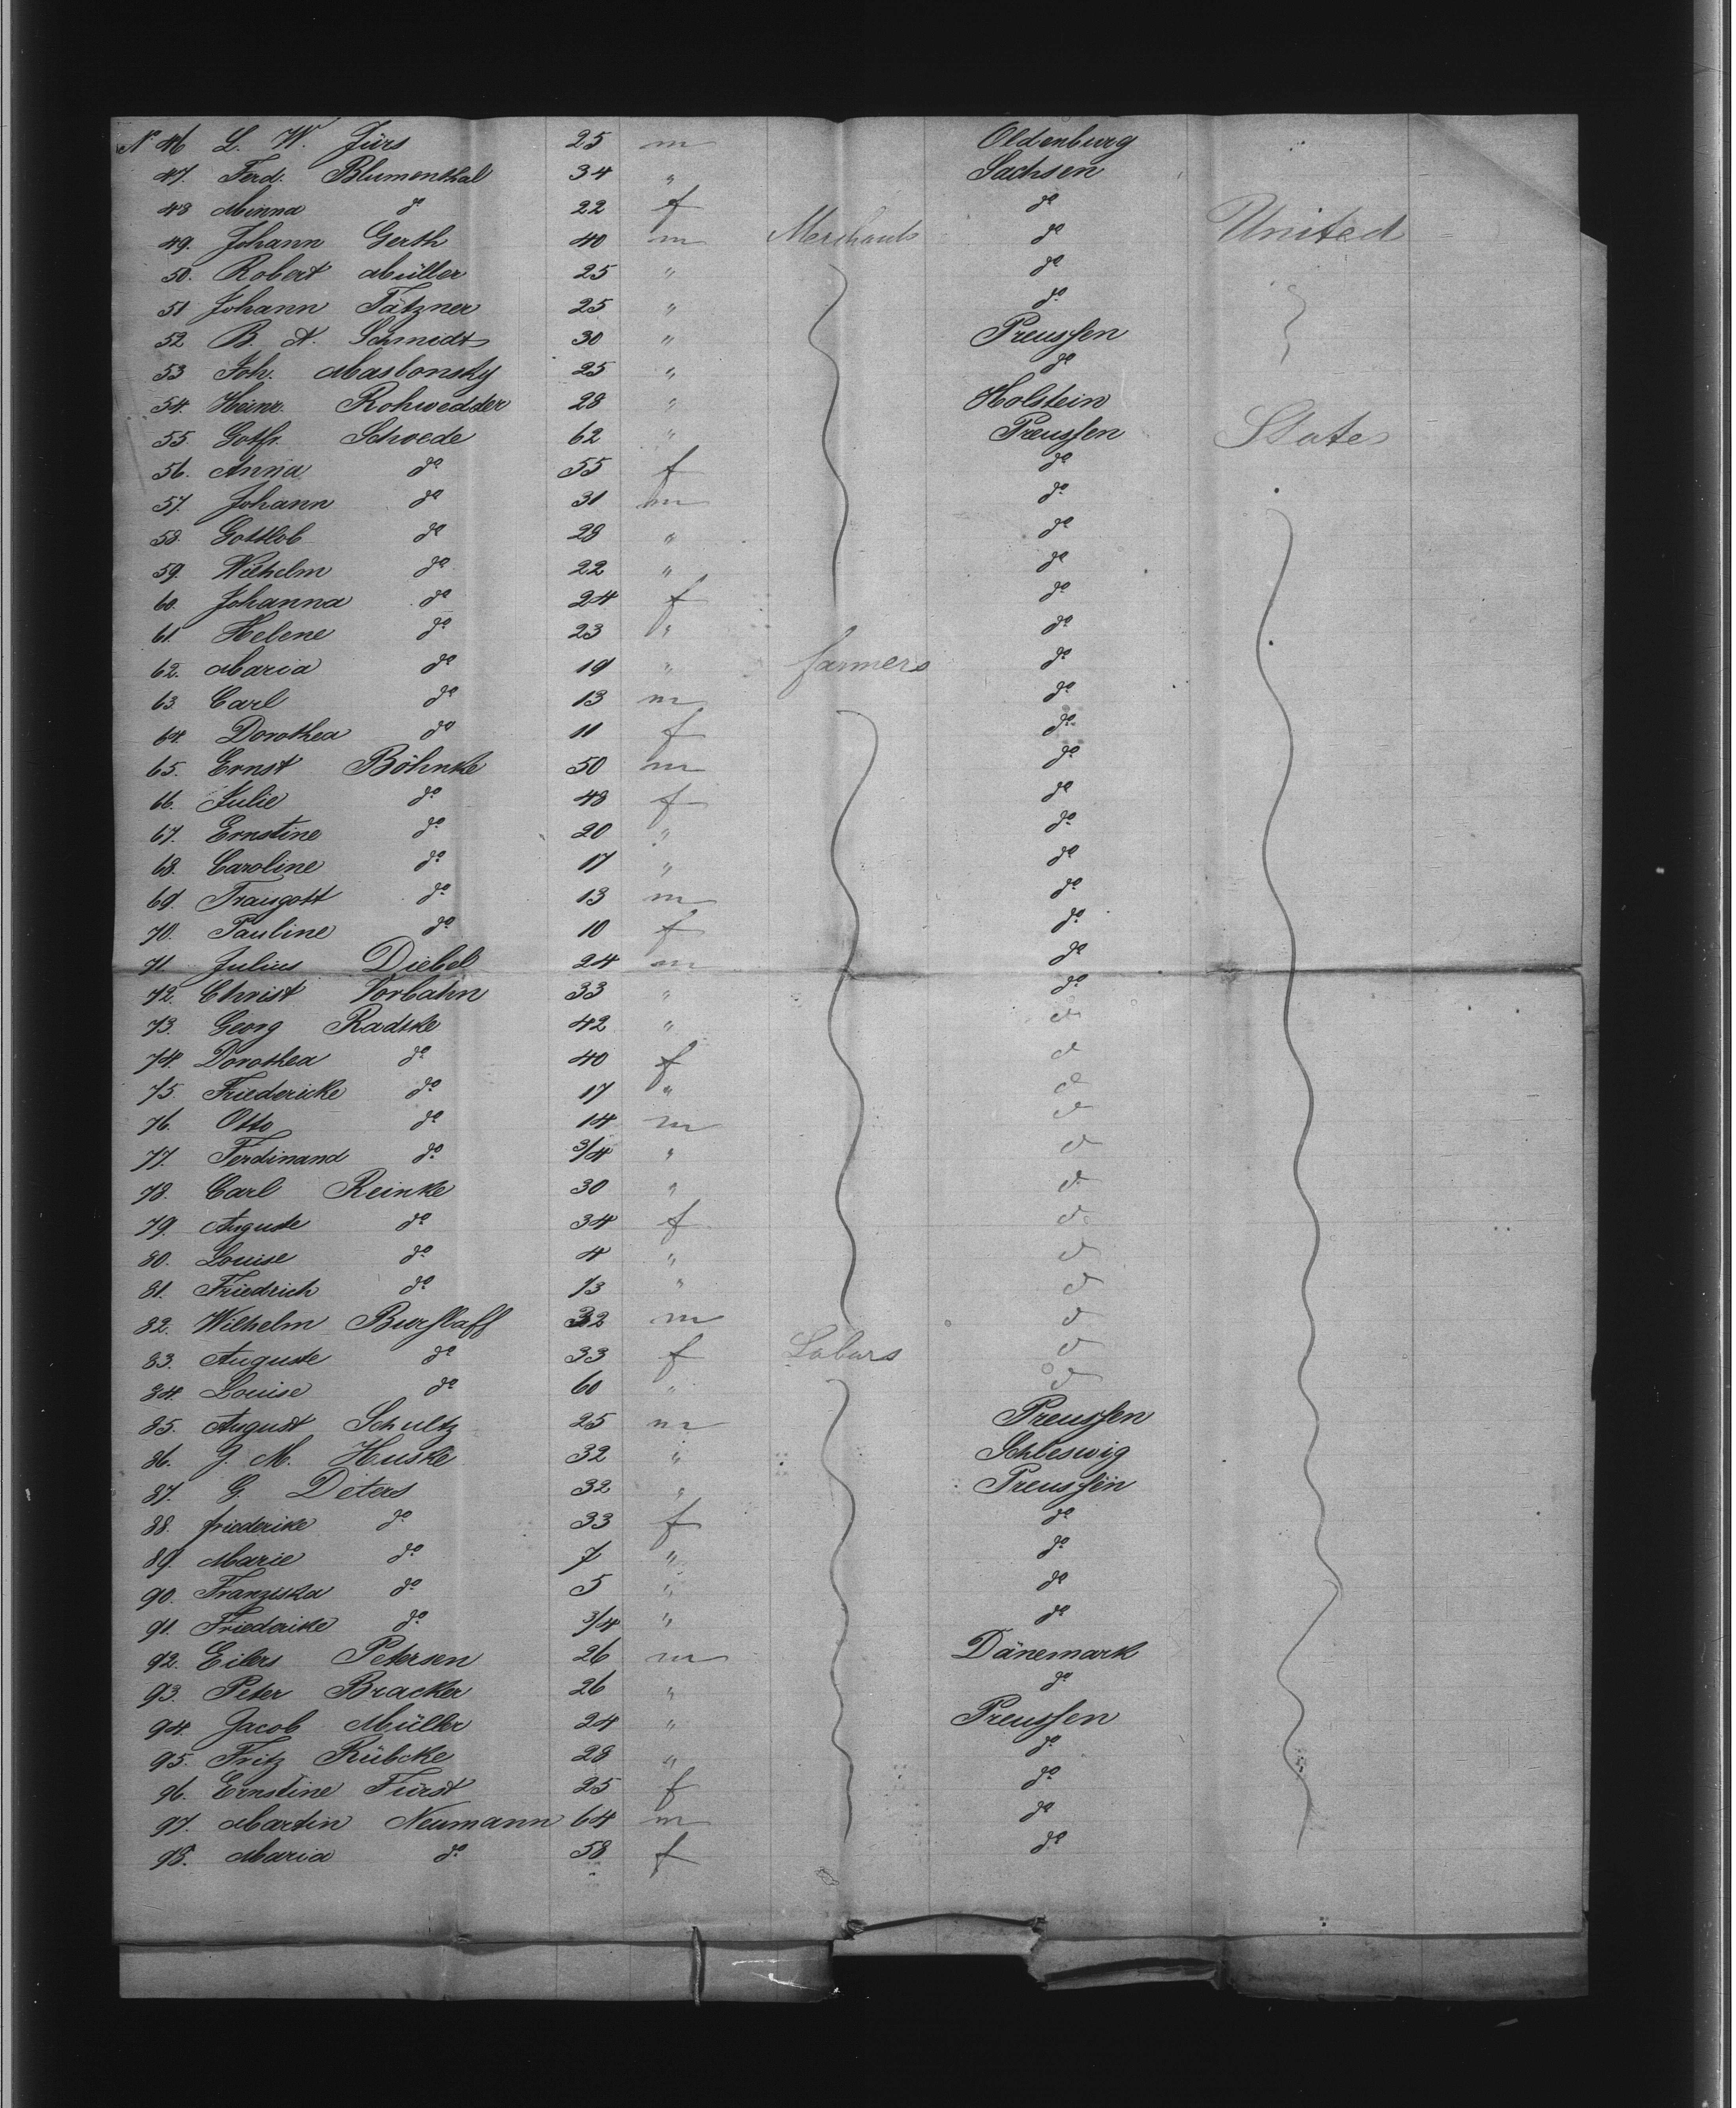 No 46 L. W. Jürs 25 m Oldenburg
47. Ferd. Blumenthal 34 " Sachsen
48 Minna do 22 f do
49. Johann Gerth 40 m Merchants do United
50. Robert Müller 25 " do
51 Johann Tätzner 25 " do
52 B. A. Schmidt 30 " Preussen
53 Joh. Maslonsky 25 " do
54. Heinr. Rohwedder 28 " Holstein
55 Gotfr. Schwede 62 " Preussen States
56. Anna do 55 f do
57. Johann do 31 m do
58. Gottlob do 28 " do
59. Wilhelm do 22 " do
60. Johanna do 24 f do
61. Helene do 23 " do
62. Maria do 19 " farmers do
63. Carl do 13 m do
64. Dorothea do 11 f do
65. Ernst Böhnke 50 m do
66. Julie do 48 f do
67. Ernstine do 20 " do
68. Caroline do 17 " do
69. Traugott do 13 m do
70. Pauline do 10 f do
71 Julius Diebel 24 m do
72. Christ Vorbahn 33 " do
73. Georg Radtke 42 " do
74. Dorothea do 40 f do
75. Friedericke do 17 " do
76. Otto do 14 m do
77. Ferdinand do 3/4 " do
78. Carl Reinke 30 " do
79. Auguste do 34 f do
80. Louise do 4 " do
81. Friedrich do 13 " do
82. Wilhelm Burslaff 32 m do
83. Auguste do 33 f Labars do
84. Louise do 60 " do
85. August Schultz 25 m Preussen
86. G. M. Huske 32 " Schleswig
87. G. Deters 32 " Preussen
88. friederike do 33 f do
89. Marie do 7 " do
90. Franziska do 5 " do
91. Friederike do 3/4 " do
92. Eilers Petersen 26 m Dänemark
93. Peter Bracker 26 " do
94. Jacob Müller 24 " Preussen
95. Fritz Rübcke 28 " do
96. Ernstine Fürst 25 f do
97. Martin Neumann 64 m do
98. Maria do 58 f do